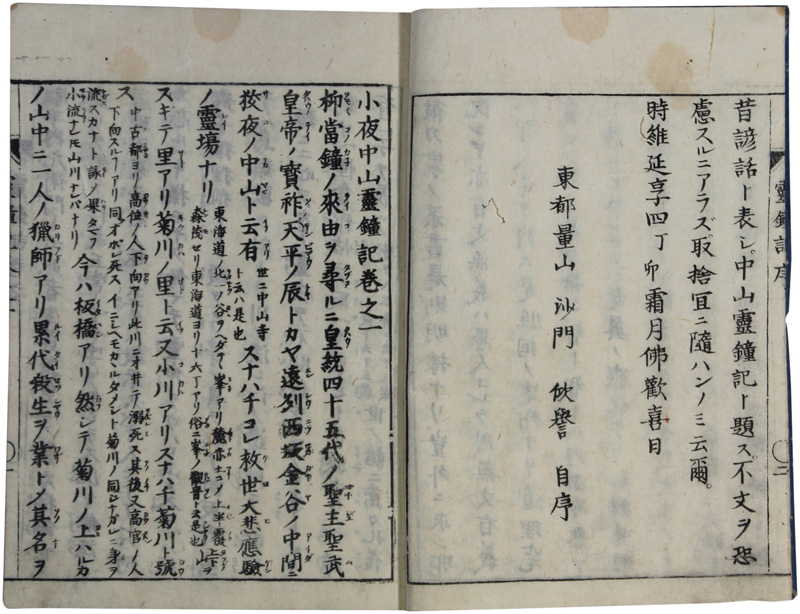 昔諺話ト表シ。中山靈鐘記ト題ス。不文ヲ恐
慮スルニアラズ。取捨宜ニ隨ハンノミ云爾。
時維延享四丁卯霜月佛歡喜日
東都量山 沙門 忺譽 自序
靈鐘記序
小夜中山靈鐘記卷之一
抑當鐘ノ來由ヲ尋ルニ皇統四十五代ノ聖主聖武
皇帝ノ寶祚天平ノ辰トカヤ遠列西坂金谷ノ中間ニ
狡夜ノ中山ト云有 世ニ中山寺ト云ハ是也 スナハチコレ救世大悲應驗
ノ靈塲ナリ 東海道ノ北一ノ谷ヲヘダテ峯アリ
森茂セリ東海道ヨリノ十六丁アリ俗ニ峯ノ觀音ト云是也
スキテ里アリ菊川ノ里ト云又小川アリスナハチ菊川ト號
ス 中古都ヨリ高位ノ人下向アリ此川ニオ井テ溺死ス其後又高官ノ人
下向スルフアリ同オボレ死ス イニシヘモカヽルタメシト菊川ノ同ナガレニ身ヲ
流スカナト詠メ果タマヲ
小流ナレ𪜈山川ナレバナリ 今ハ板橋アリ然シテ菊川ノ上ハルカ
ノ山中ニ一人ノ獵師アリ累代殺生ヲ業トメ其名ヲ